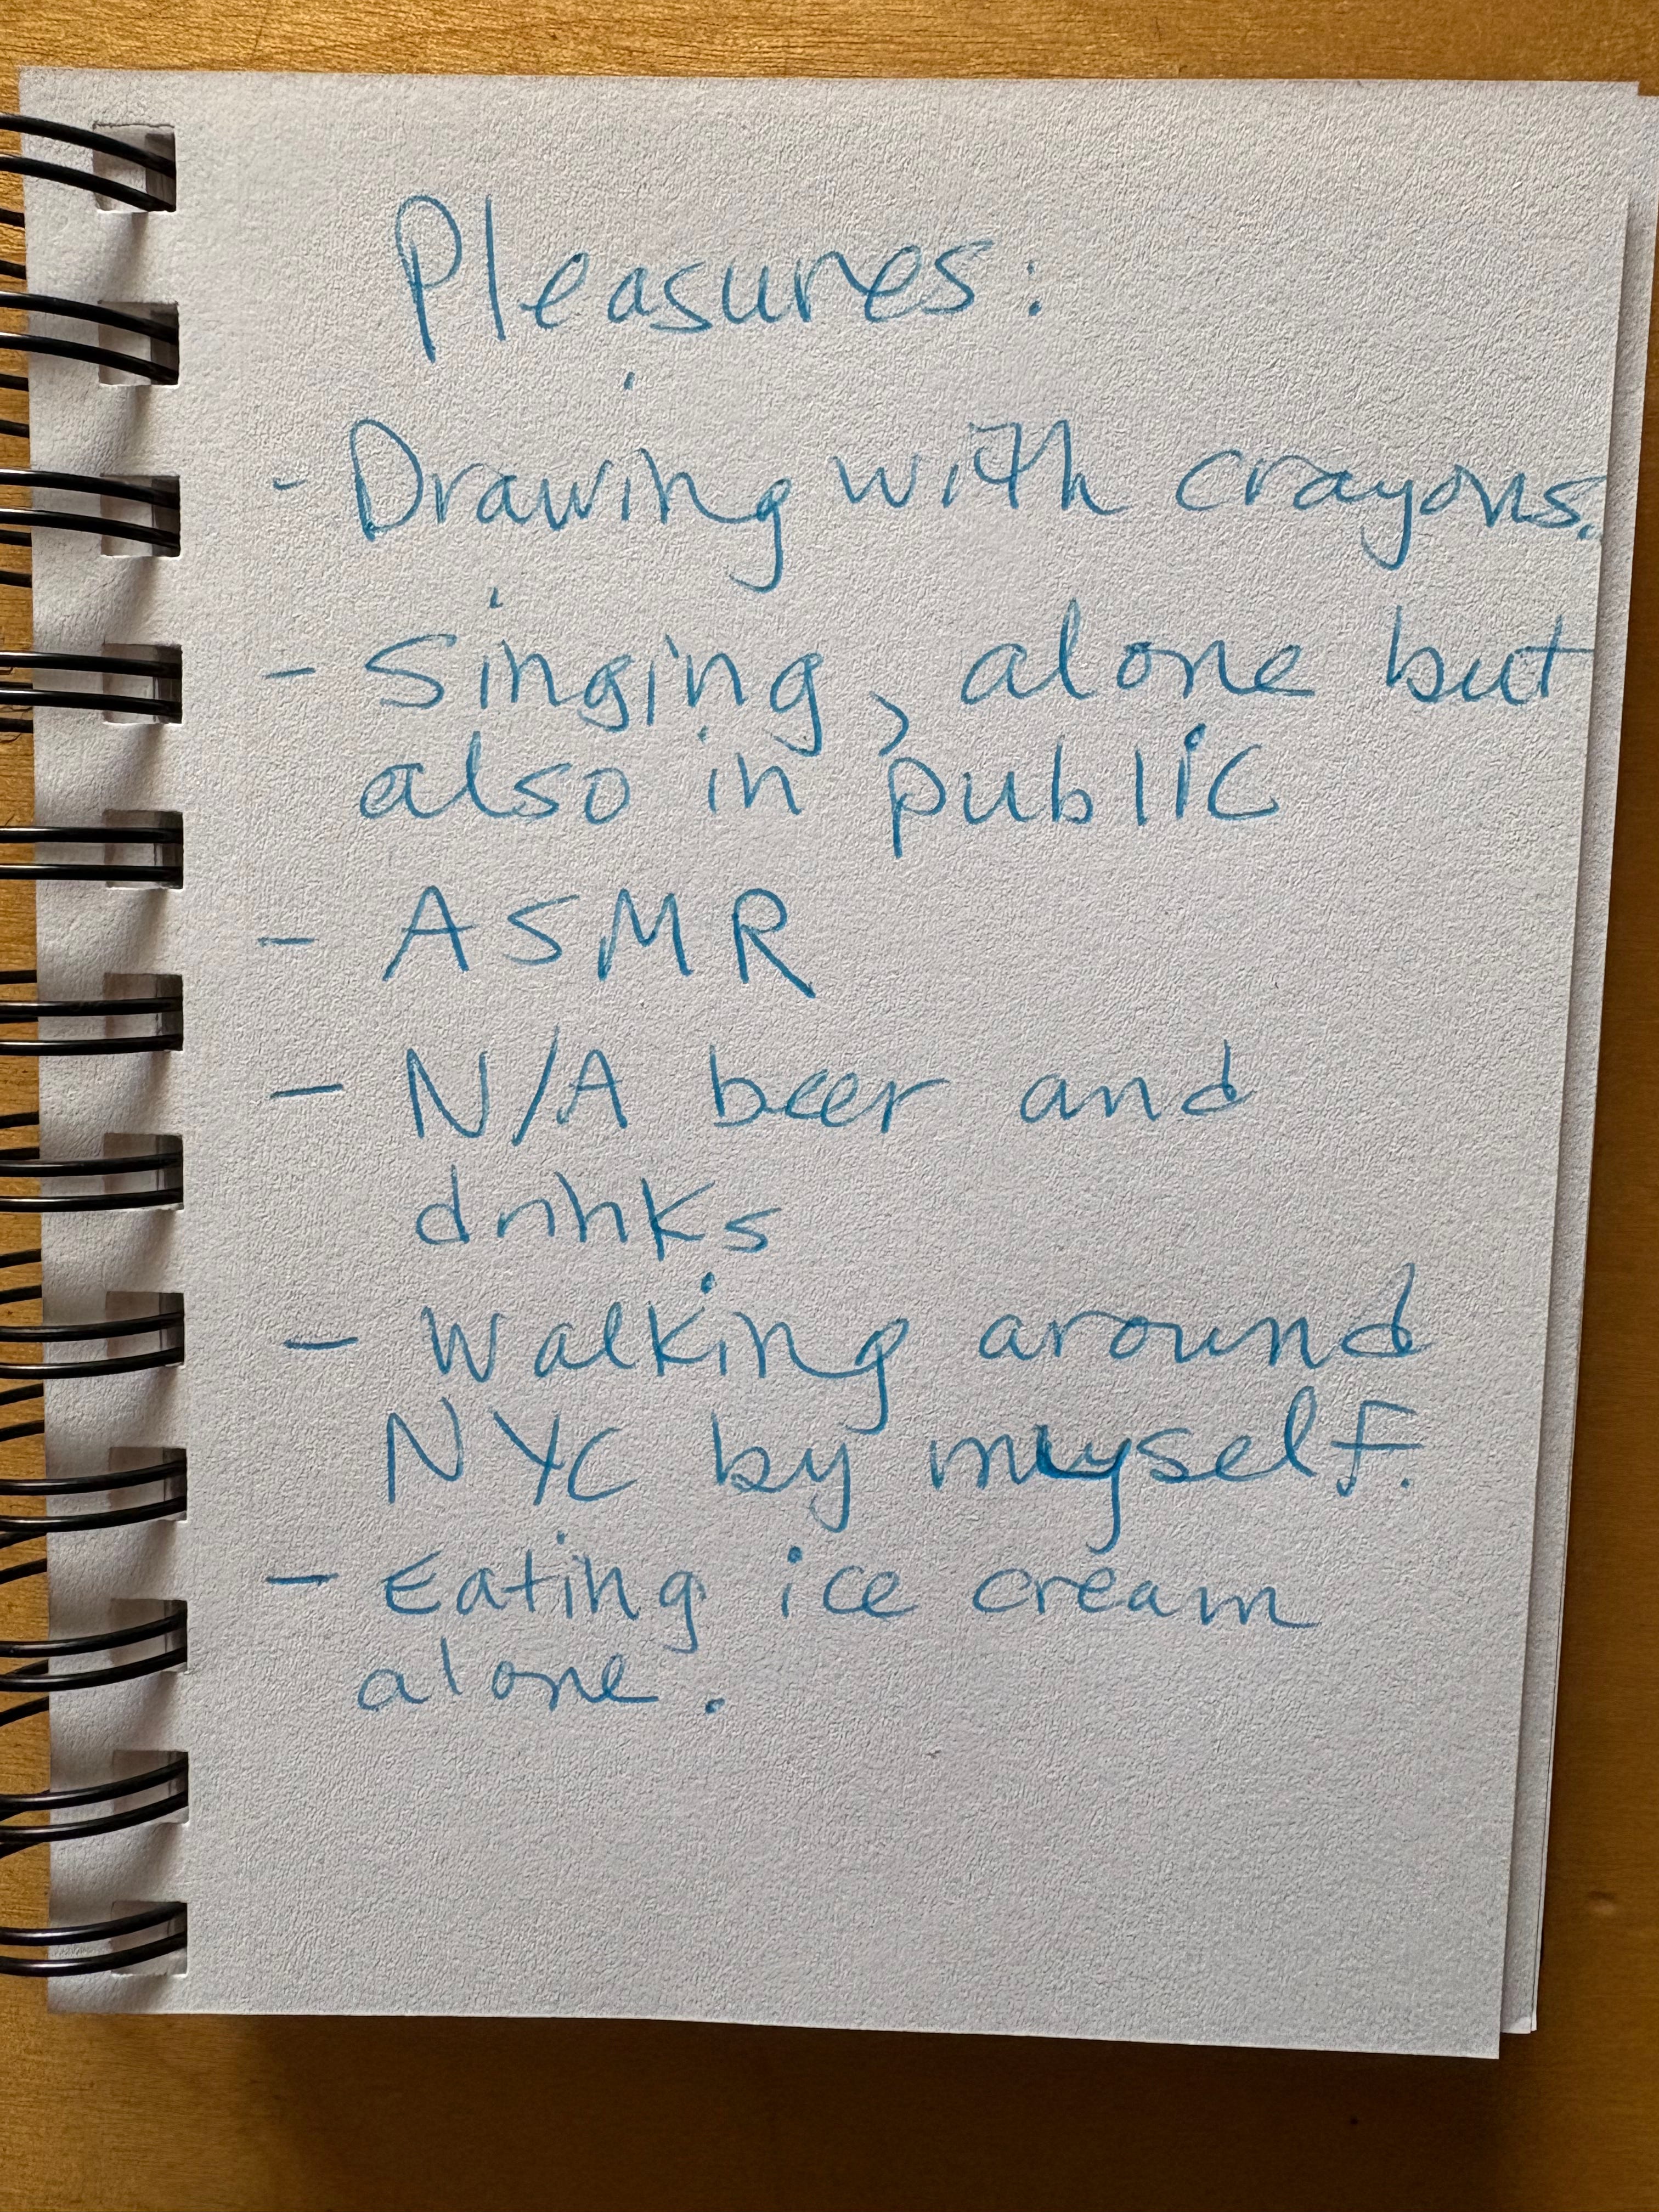 Pleasures:
- Drawing with crayons.
- Singing, alone but
also in public
- ASMR
- N/A beer and
drinks
- Walking around
NYC by myself.
- Eating ice cream
alone.